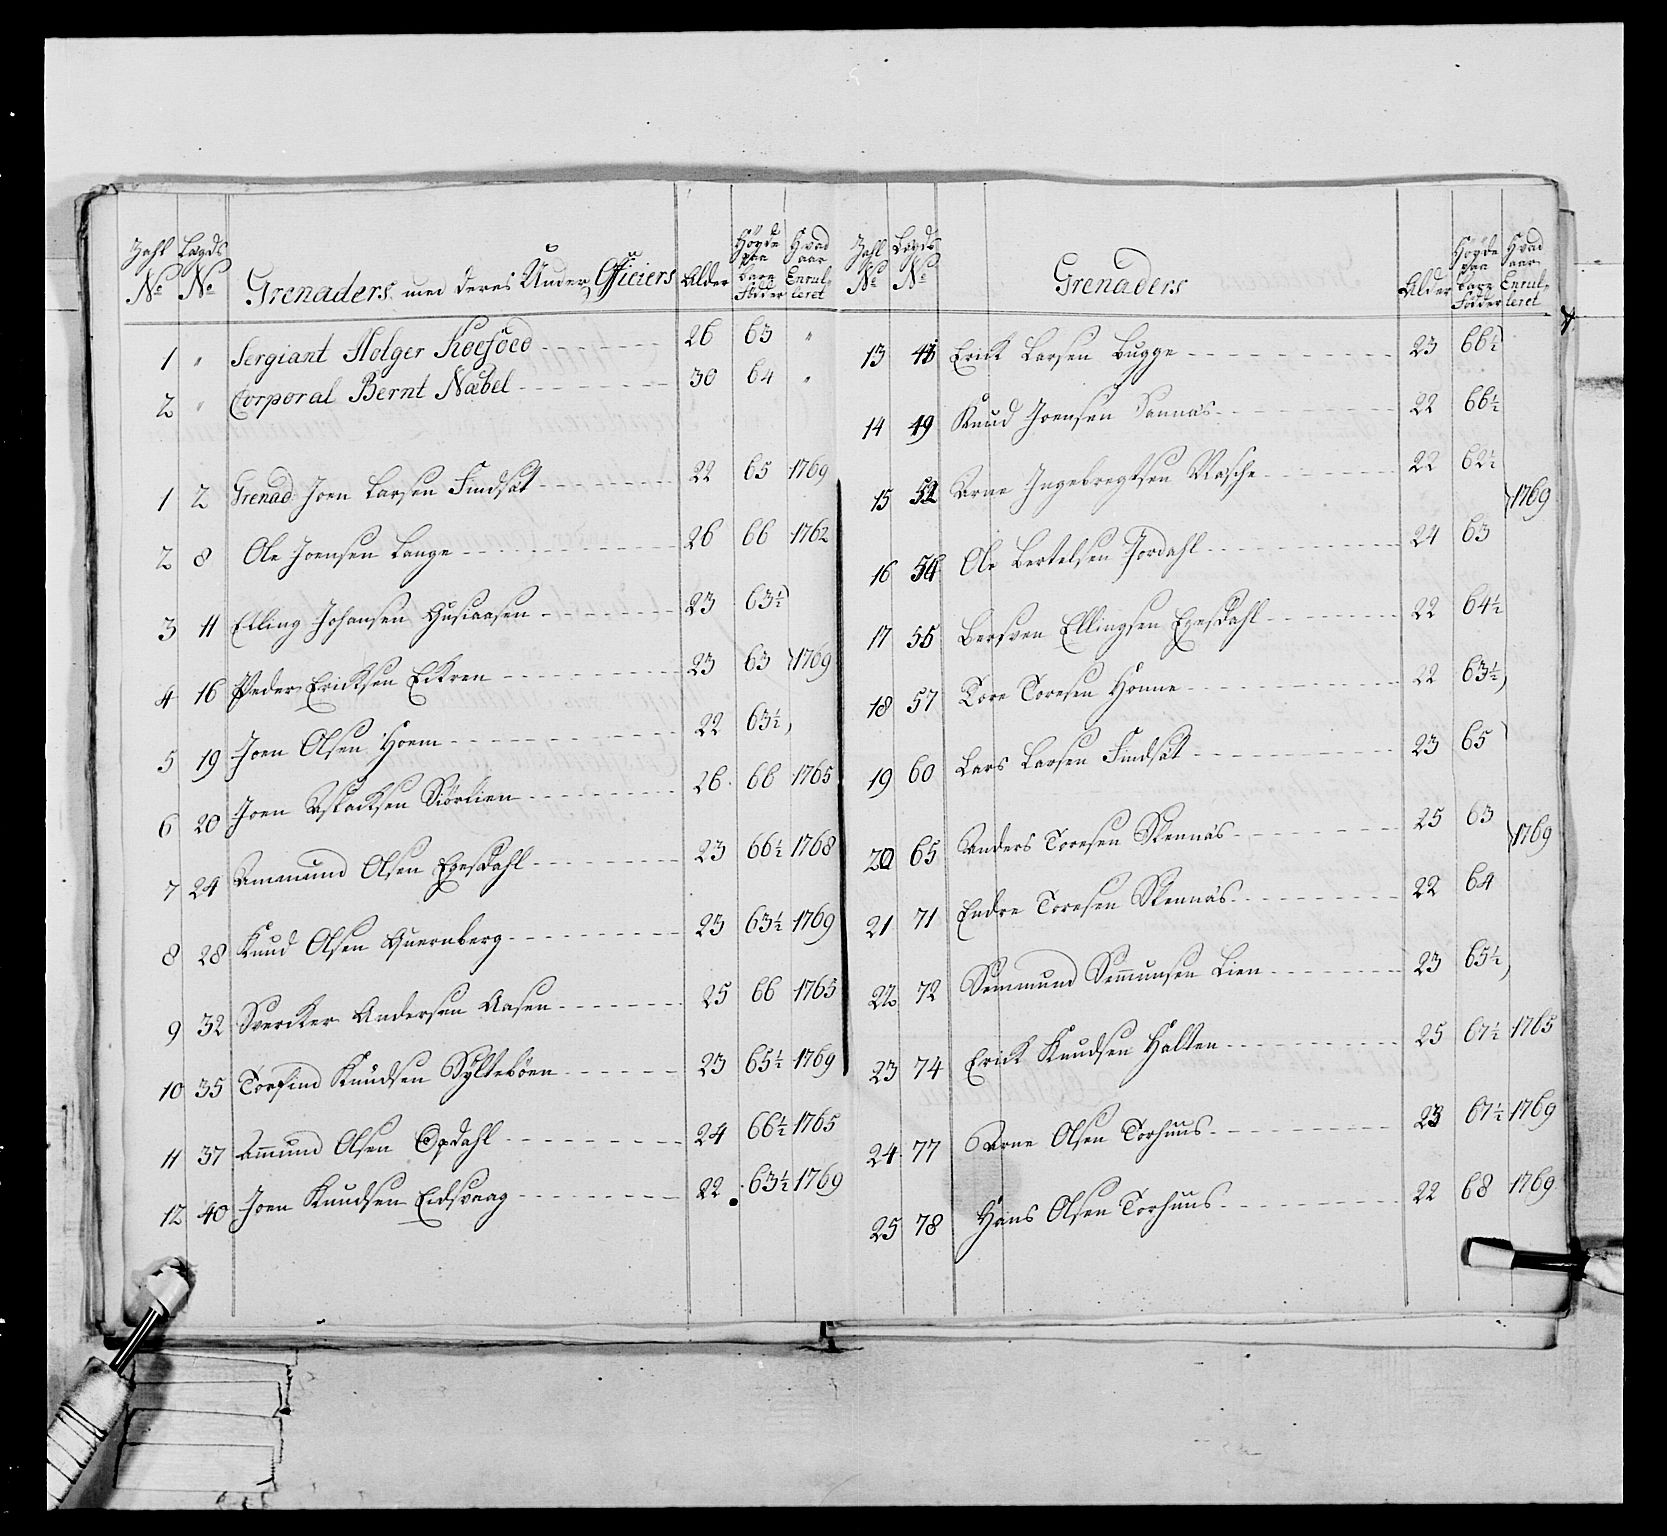 Zahl No Lægds No Grenaders med deres Under Officiers Alder Høyde paa bare Fødder Hvad aar Enrulleret
1 " Sergiant Holger Koefoed 26 63 "
2 " Corporal Bernt Næbel 30 64 "
1 2 Grenad: Joen Larsen Findsæt 22 65 1769
2 8 Ole Joensen Lange 26 66 1762
3 11 Elling Johansen Gusiaasen 23 63½
4 16 Peder Ericksen Eckren 23 63 1769
5 19 Joen Olsen Hoem 22 63½
6 20 Joen Aslacksen Siørlien 26 66 1765
7 24 Ammund Olsen Eresdahl 23 66½ 1768
8 28 Knud Olsen Quernberg 23 63½ 1769
9 32 Svercker Andersen Aasen 25 66 1765
10 35 Torfind Knudsen Syltebøen 23 65½ 1769
11 37 Ammund Olsen Opdahl 24 66½ 1765
12 40 Joen Knudsen Eidsvaag 22 63½ 1769
Zahl No Lægds No Grenaders Alder Høyde paa bare Fødder Hvad aar Enrulleret
13 43 Erick Larsen Bugge 23 66½
14 49 Knud Joensen Sannæs 22 66½
15 52 Arne Ingebregtsen 22 62½
1769
16 54 Ole Bertelsen Jordahl 24 63
17 55 Bersven Ellingsen Eresdahl 22 64½
18 57 Tore Toresen Honne 22 63½
19 60 Lars Larsen Findsæt 23 65
20 65 Anders Toresen Stennæs 25 63
1769
21 71 Endre Toresen Stennæs 22 64
22 72 Semmund Semmunsen Lien 23 65½
23 74 Erick Knudsen Halten 25 67½ 1765
24 77 Arne Olsen Torhuus 23 67½ 1769
25 78 Hans Olsen Torhuus 22 68 1769